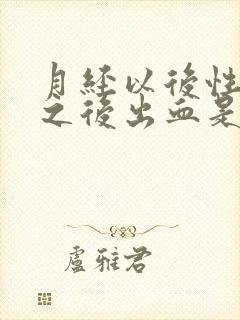 月經以後性
之後出血是
盧雅君